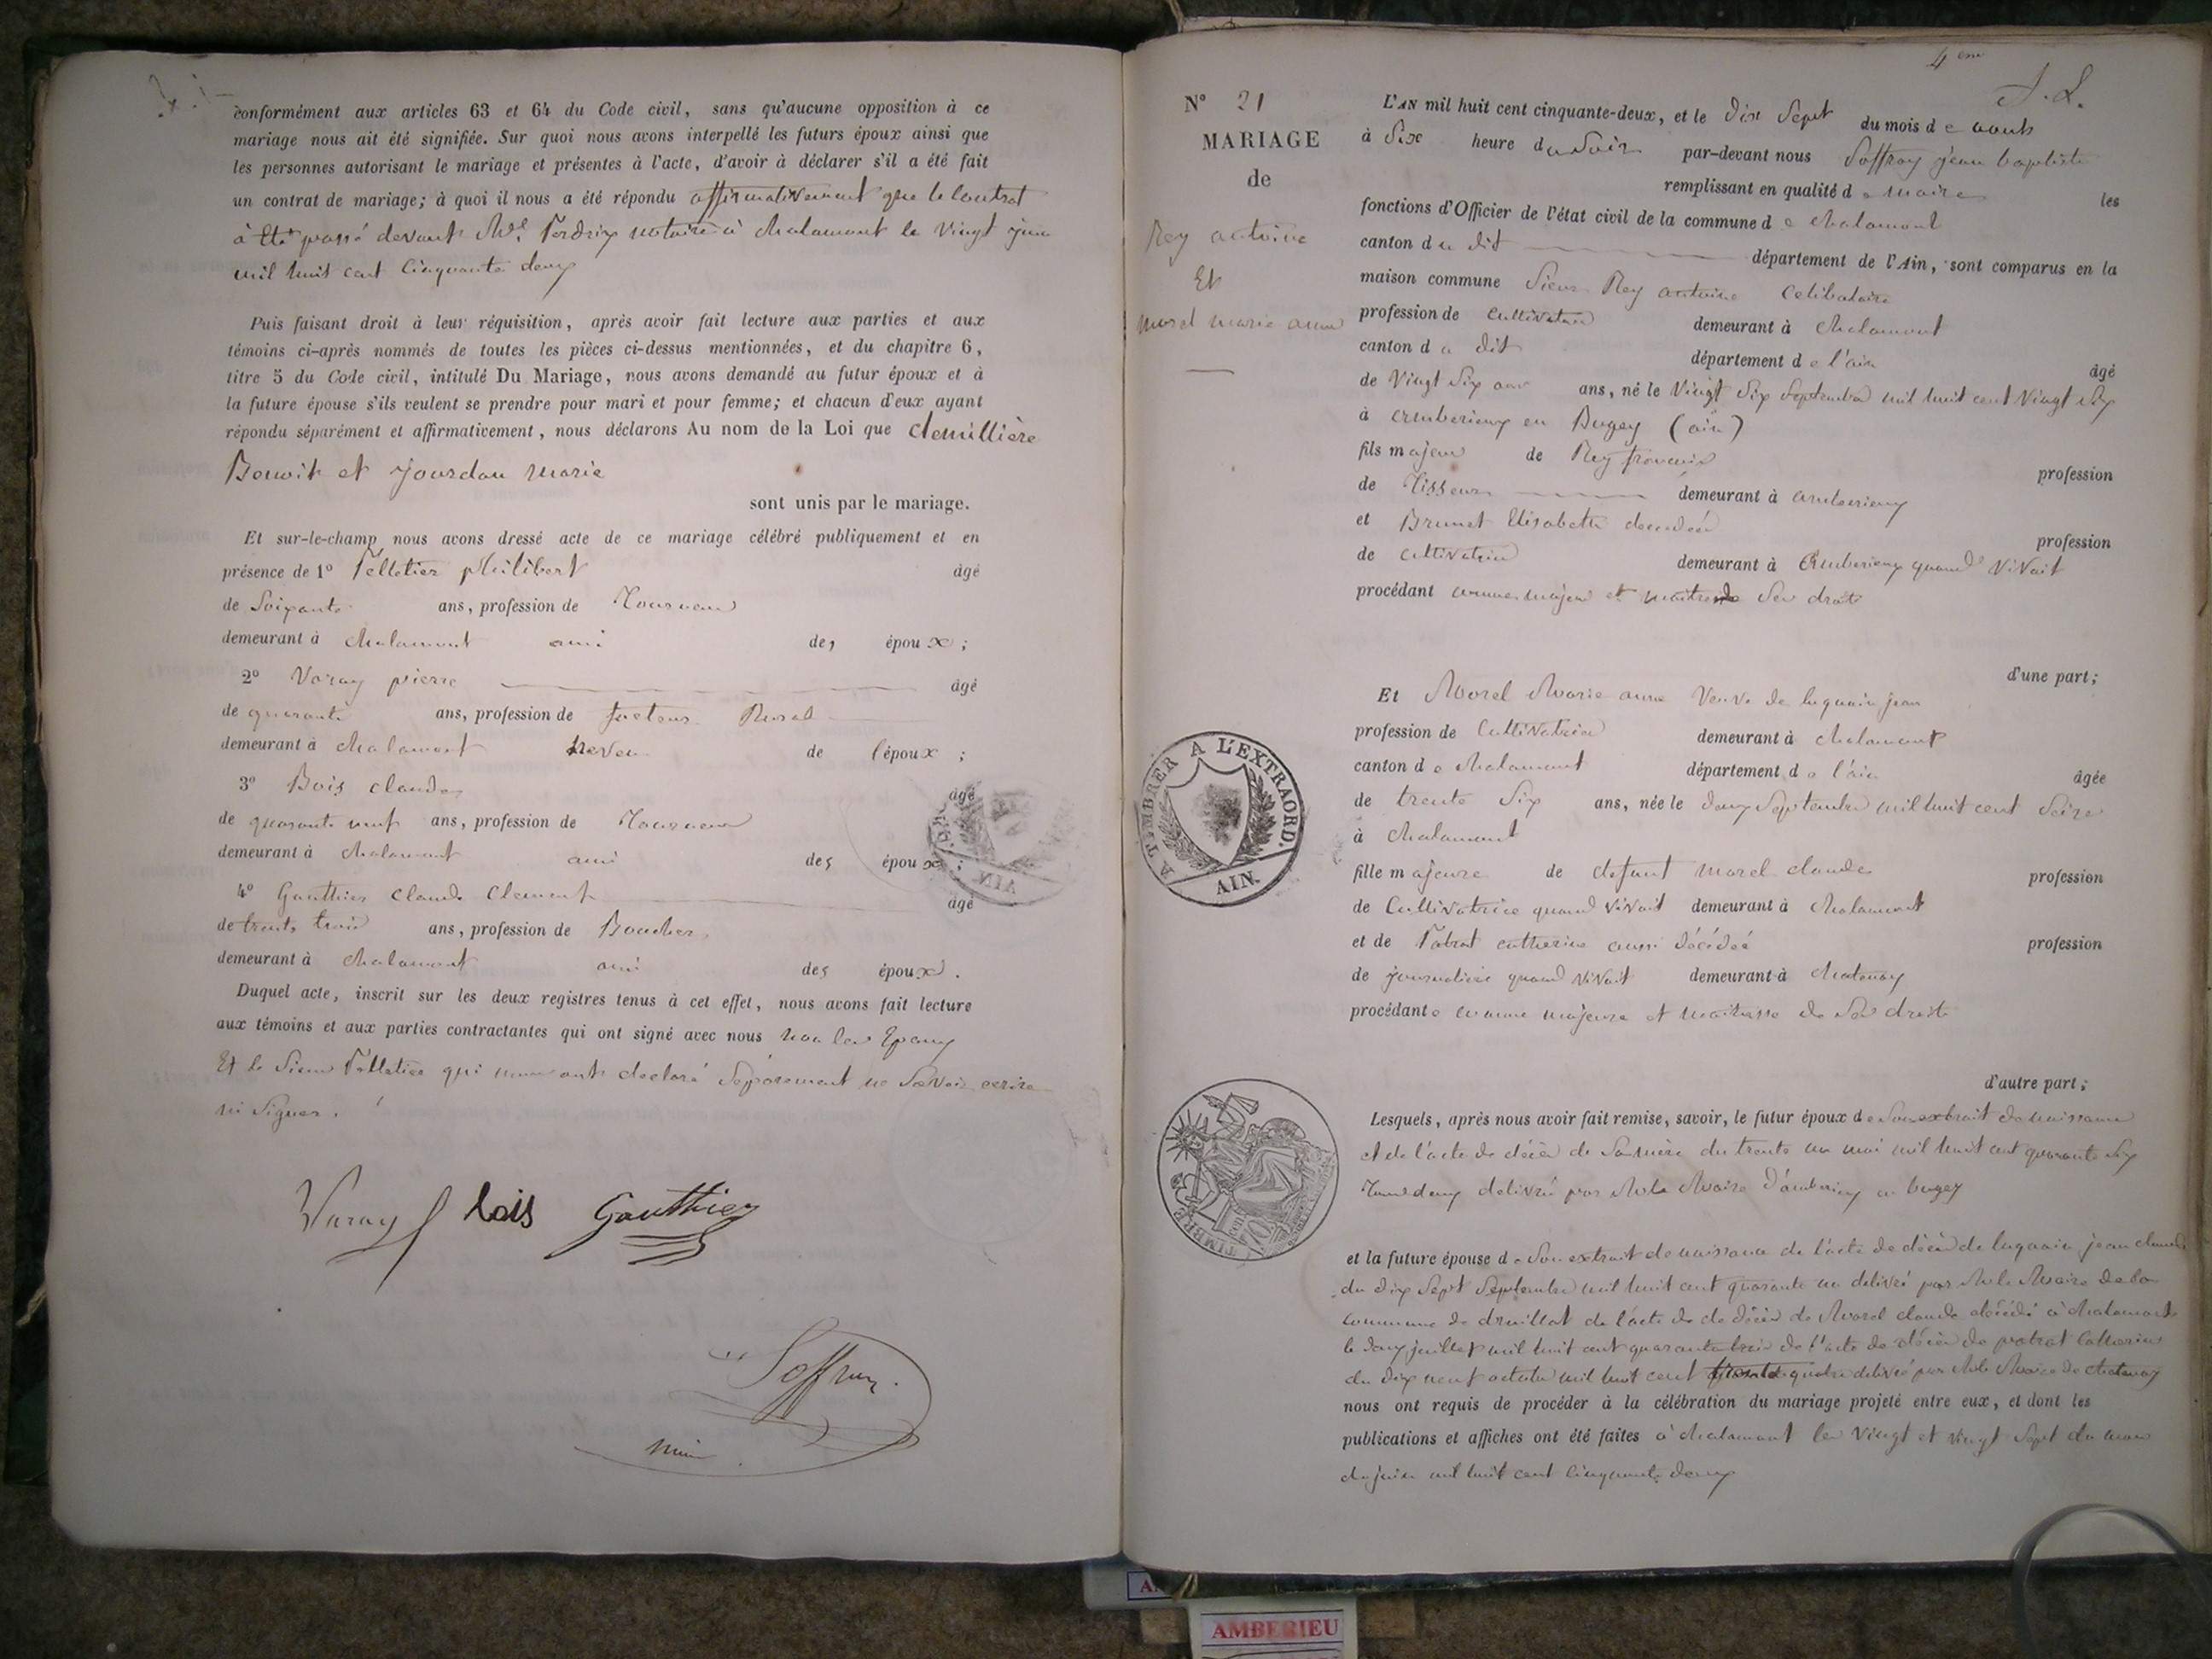 conformément aux articles 63 et 64 du Code civil, sans qu'aucune opposition à ce
mariage nous ait été signifiée. Sur quoi nous avons interpellé les futurs époux ainsi que
les personnes autorisant le mariage et présentes à l'acte, d'avoir à déclarer s'il a été fait
un contrat de mariage; à quoi il nous a été répondu affirmativement que le Contrat
à été passé devant Me Perdrix notaire à chalamont le vingt juin
mil huit cent Cinquante deux
Puis faisant droit à leur réquisition, après avoir fait lecture aux parties et aux
témoins ci-après nommés de toutes les pièces ci-dessus mentionnées, et du chapitre 6,
titre 5 du Code civil, intitulé Du Mariage, nous avons demandé au futur époux et à
la future épouse s'ils veulent se prendre pour mari et pour femme; et chacun d'eux ayant
répondu séparément et affirmativement, nous déclarons Au nom de la Loi que
Benoit et Jourdan marie
sont unis par le mariage.
Et sur-le-champ nous avons dressé acte de ce mariage célébré publiquement et en
présence de 1º Pelletier philibert âgé
de Soixante ans, profession de
demeurant à chalamont ami des époux ;
2º Varay pierre âgé
de quarante ans, profession de facteur Rural
demeurant à chalamont neveu de l'époux ;
3º Bois claude âgé
de quarante neuf ans, profession de
demeurant à chalamont ami des époux ;
4º Gauthier Claude Clement âgé
de trente trois ans, profession de Boucher
demeurant à chalamont ami des époux .
Duquel acte, inscrit sur les deux registres tenus à cet effet, nous avons fait lecture
aux témoins et aux parties contractantes qui ont signé avec nous non les Epoux
Et le Sieur Pelletier qui nous ont declaré Séparement ne Savoir ecrire
ni Signer.
Varay Bois Gauthier
Soffray
4 eme
Nº 21
MARIAGE
de
Rey antoine
Et
morel marie anne
L'AN mil huit cent cinquante-deux, et le dix Sept du mois de aout
à Six heure du Soir par-devant nous Soffray jean baptiste
remplissant en qualité de maire les
fonctions d'Officier de l'état civil de la commune de chalamont
canton du dit département de l'Ain, sont comparus en la
maison commune Sieur Rey antoine Celibataire
profession de Cultivateur demeurant à chalamont
canton du dit département de l'ain âgé
de vingt Six ans ans, né le Vingt Six Septembre mil huit cent Vingt Six
à amberieux en Bugey (ain)
fils majeur de Rey francois profession
de Tisseur demeurant à amberieux
et Brunet Elisabeth decedée profession
de cultivatrice demeurant à amberieux quand vivait
procédant comme majeur et maitre de Ses droits
d'une part;
Et Morel Marie anne Veuve de luquain jean
profession de Cultivatrice demeurant à chalamont
canton de chalamont département de l'ain âgée
de trente Six ans, née le deux Septembre mil huit cent Seize
à chalamont
fille majeure de defunt morel claude profession
de Cultivatrice quand vivait demeurant à chalamont
et de catherine aussi décédée profession
de journaliere quand vivait demeurant à chatenay
procédante comme majeure et maitresse de Ses droits
d'autre part;
Lesquels, après nous avoir fait remise, savoir, le futur époux de Son extrait de naissance
et de l'acte de décès de Sa mère du trente un mai mil huit cent quarante Six
Tous deux delivré par Mr le Maire d'amberieux en bugey
et la future épouse de Son extrait de naissance de l'acte de décès de luquain jean claude
du dix Sept Septembre mil huit cent quarante un delivré par Mr le Maire de la
Commune de druillat de l'acte de de décès de Morel claude décédé à chalamont
le deux juillet mil huit cent quarante trois de l'acte de décès de catherine
du dix neuf octobre mil huit cent quatre delivré par Mr le Maire de chatenay
nous ont requis de procéder à la célébration du mariage projeté entre eux, et dont les
publications et affiches ont été faites à chalamont les Vingt et vingt Sept du mois
de juin mil huit cent Cinquante deux
A TIMBRER A L'EXTRAORD.
AIN.
TIMBRE
AMBERIEU